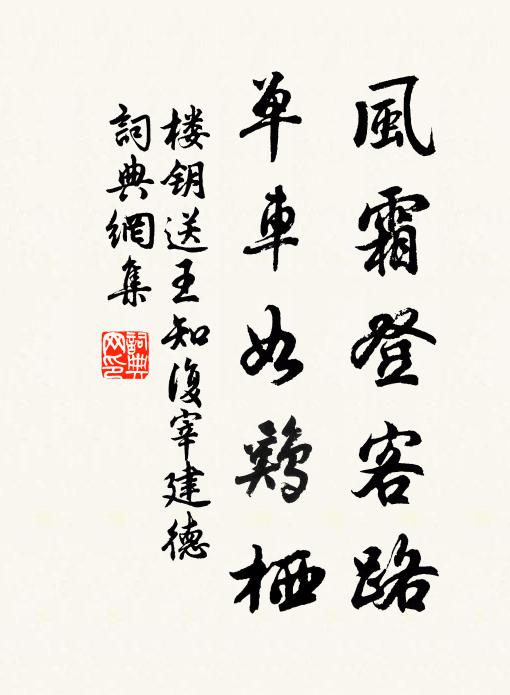 風霜登客路
单車如鷄栖
楼钥送王知復宰建德
詞典網集
詞典网印